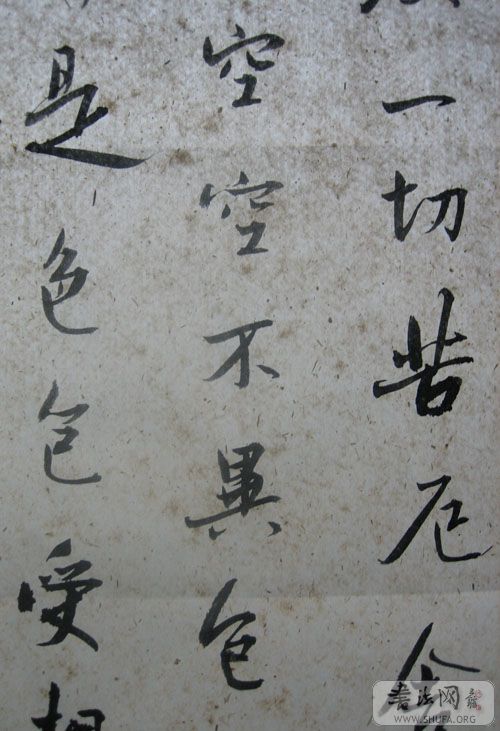 一切苦厄舍
空空不異色
是色色受想
書法网
WWW.SHUFA.ORG